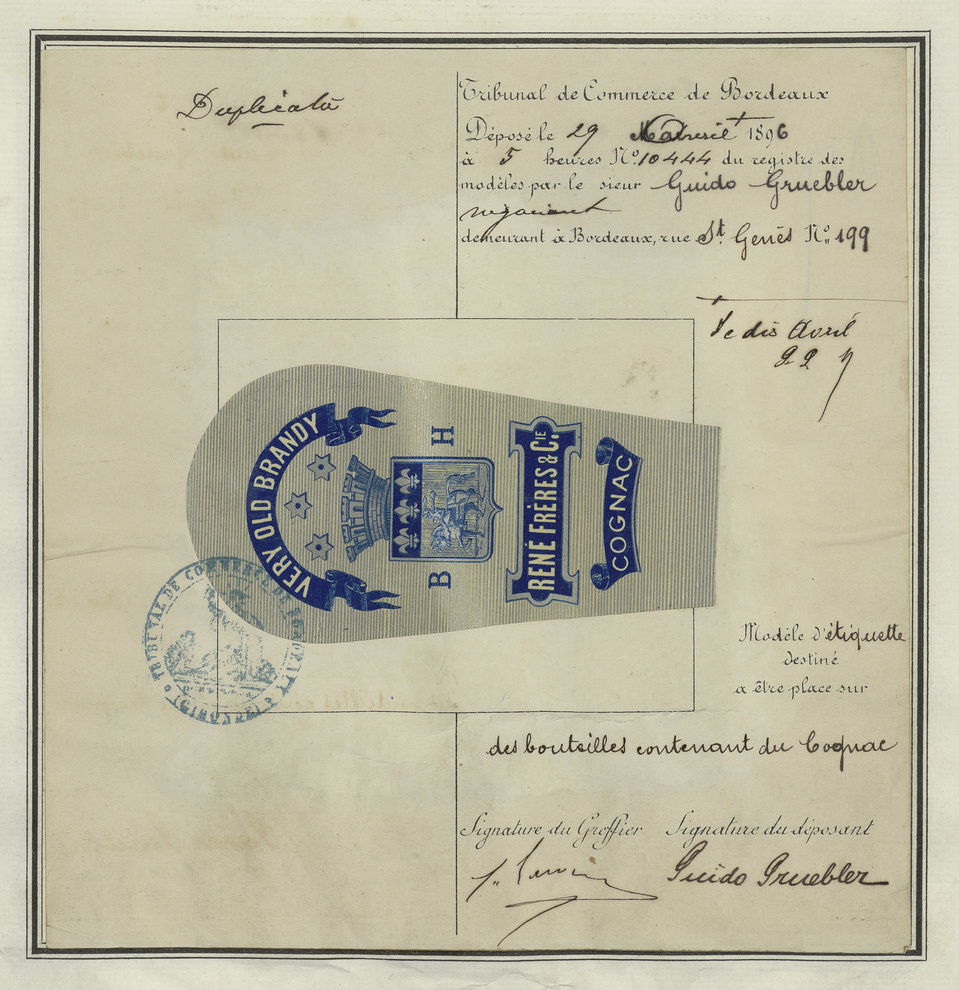 Duplicata
Tribunal de Commerce de Bordeaux
Déposé le 29 Avril 1896
à 5 heures N° 10444 du registre des
modèles par le sieur Guido Gruebler
négociant
demeurant à Bordeaux, rue St. Genès N° 199
Je dis Avril
VERY OLD BRANDY
B H
RENÉ FRÈRES & CIE
COGNAC
TRIBUNAL DE COMMERCE DE BORDEAUX
(GIRONDE)
Modèle d'étiquette
destiné
a être place sur
des bouteilles contenant du Cognac
Signature du Greffier Signature du déposant
Guido Gruebler